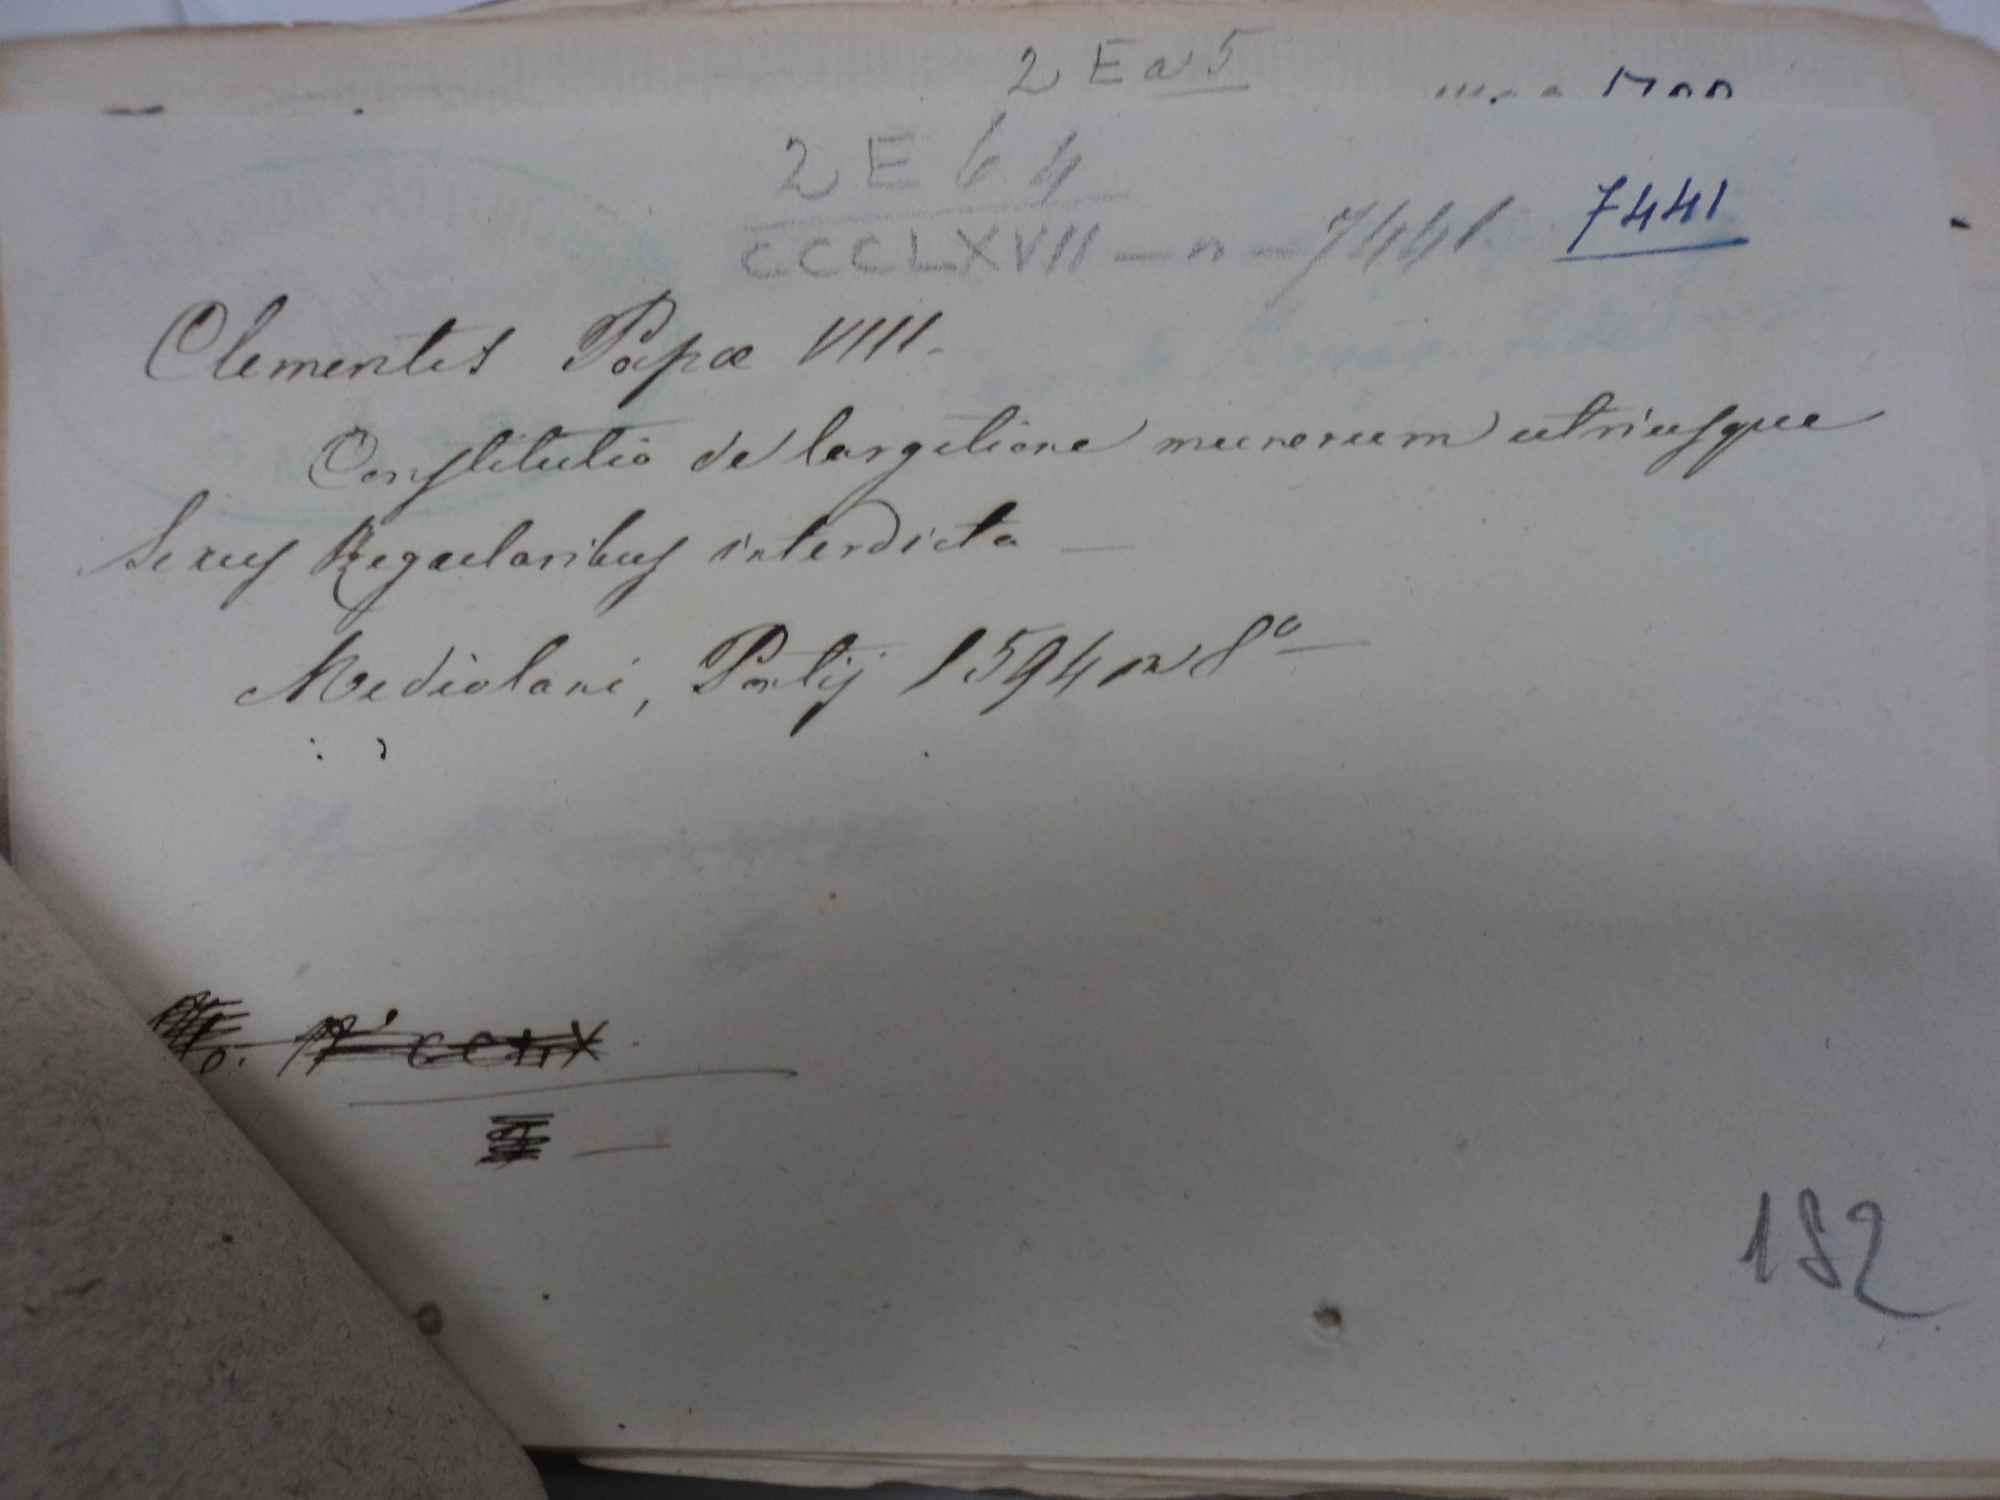 2 E a 5
2 E 64
CCCLXVII — n — 7441 7441
Clementis Papæ VIII.
Constitutio de largitione munerum utriusque
Sexus Regularibus interdicta —
Mediolani, Pontij 1594 in 8º —
182